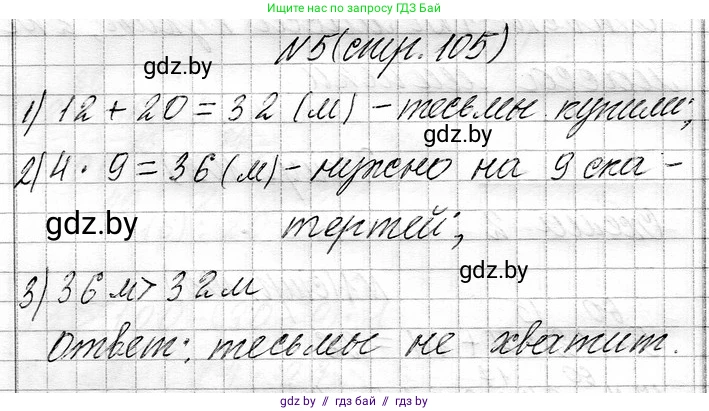 Ищите нас по запросу ГДЗ Бай
N5 (стр. 105)
gdz.by
1) 12 + 20 = 32 (м) - тесьмы купили;
gdz.by
2) 4 · 9 = 36 (м) - нужно на 9 ска-
gdz.by
тертей;
gdz.by
3) 36 м > 32 м
Ответ: тесьмы не хватит.
gdz.by // гдз бай // gdz.by